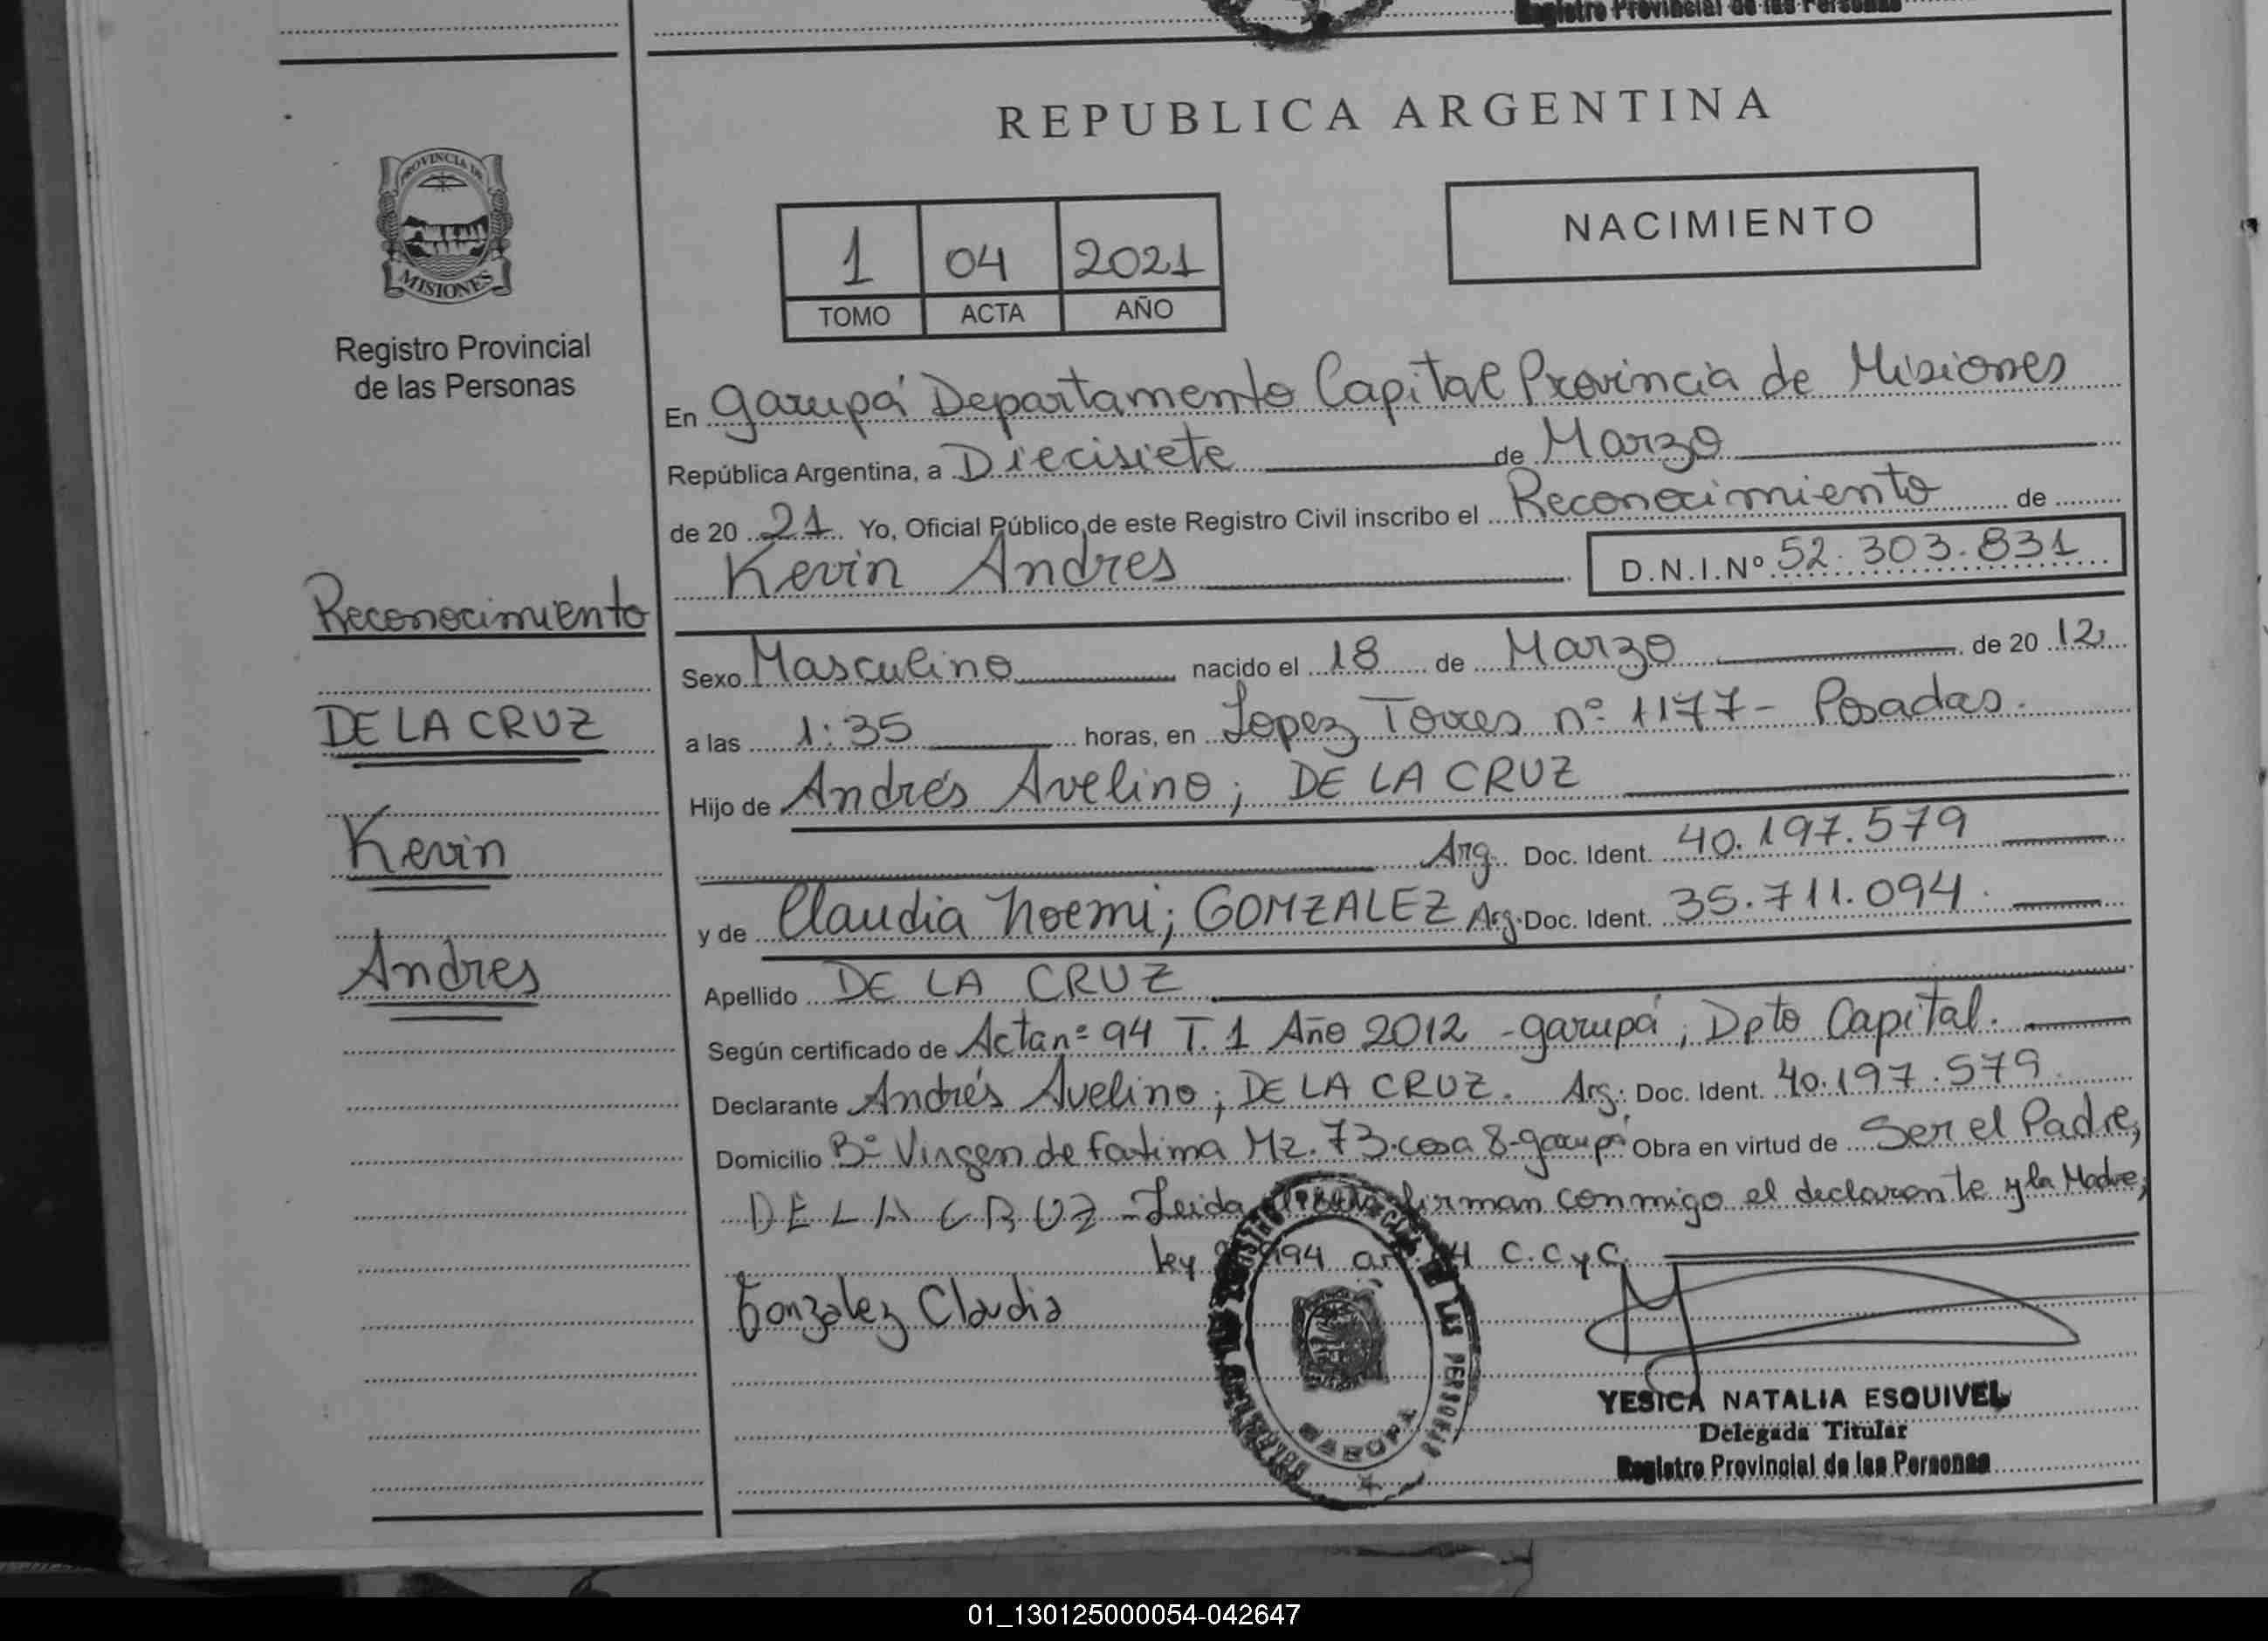 Registro Provincial de las Personas
REPUBLICA ARGENTINA
PROVINCIA DE
MISIONES
Registro Provincial
de las Personas
1 04 2021
TOMO ACTA AÑO
NACIMIENTO
En Garupá Departamento Capital Provincia de Misiones
República Argentina, a Diecisiete de Marzo
de 20 21 Yo, Oficial Público de este Registro Civil inscribo el Reconocimiento de
Kevin Andres D.N.I.Nº 52.303.831
Reconocimiento
DE LA CRUZ
Kevin
Andres
Sexo Masculino nacido el 18 de Marzo de 20 12
a las 1:35 horas, en Lopez Torres nº 1177- Posadas.
Hijo de Andrés Avelino; DE LA CRUZ
Arg. Doc. Ident. 40.197.579
y de Claudia Noemi; GONZALEZ Arg. Doc. Ident. 35.711.094
Apellido DE LA CRUZ
Según certificado de Acta nº 94 T. 1 Año 2012 -Garupá, Dpto Capital.
Declarante Andrés Avelino; DE LA CRUZ. Arg. Doc. Ident. 40.197.579
Domicilio Bº Virgen de Fatima Mz. 73-casa 8-Garupá Obra en virtud de Ser el Padre,
DE LA CRUZ -Leida firman conmigo el declarante y la Madre,
ley C.C y C.
Gonzalez Claudia
LAS PERSONAS
GARUPA
YESICA NATALIA ESQUIVEL
Delegada Titular
Registro Provincial de las Personas
01_130125000054-042647